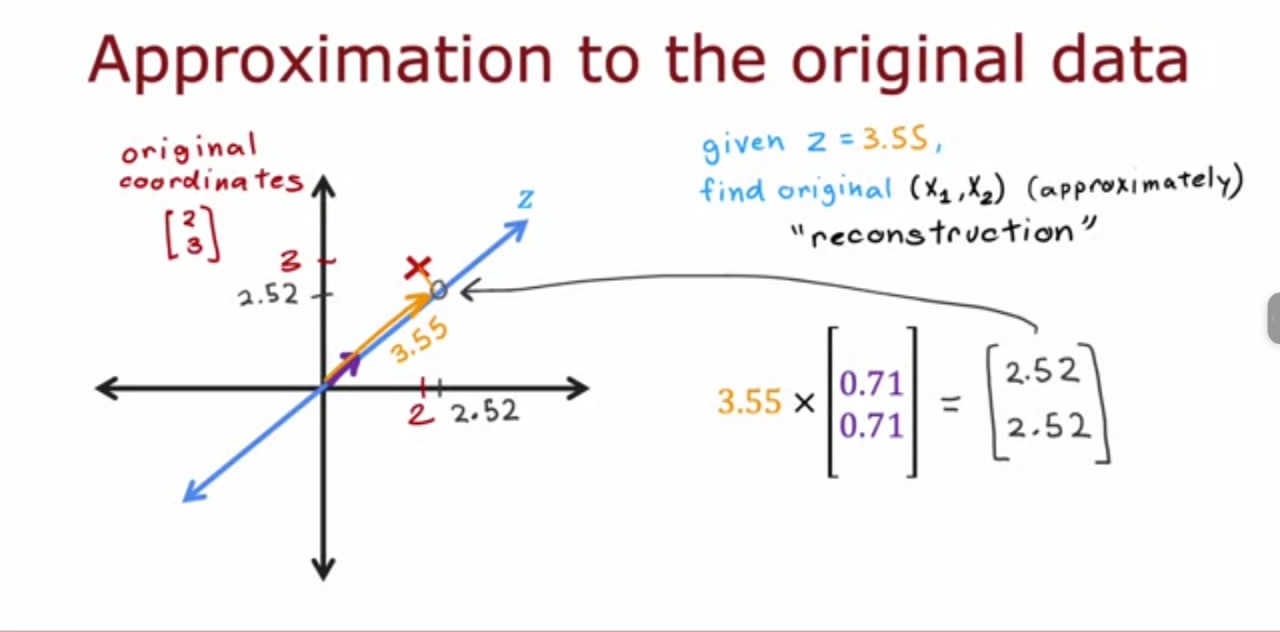 Approximation to the original data
original
coordinates
[2
3]
3
2.52
z
3.55
2
2.52
given z = 3.55,
find original (x₁,x₂) (approximately)
"reconstruction"
3.55 × [0.71
0.71] = [2.52
2.52]